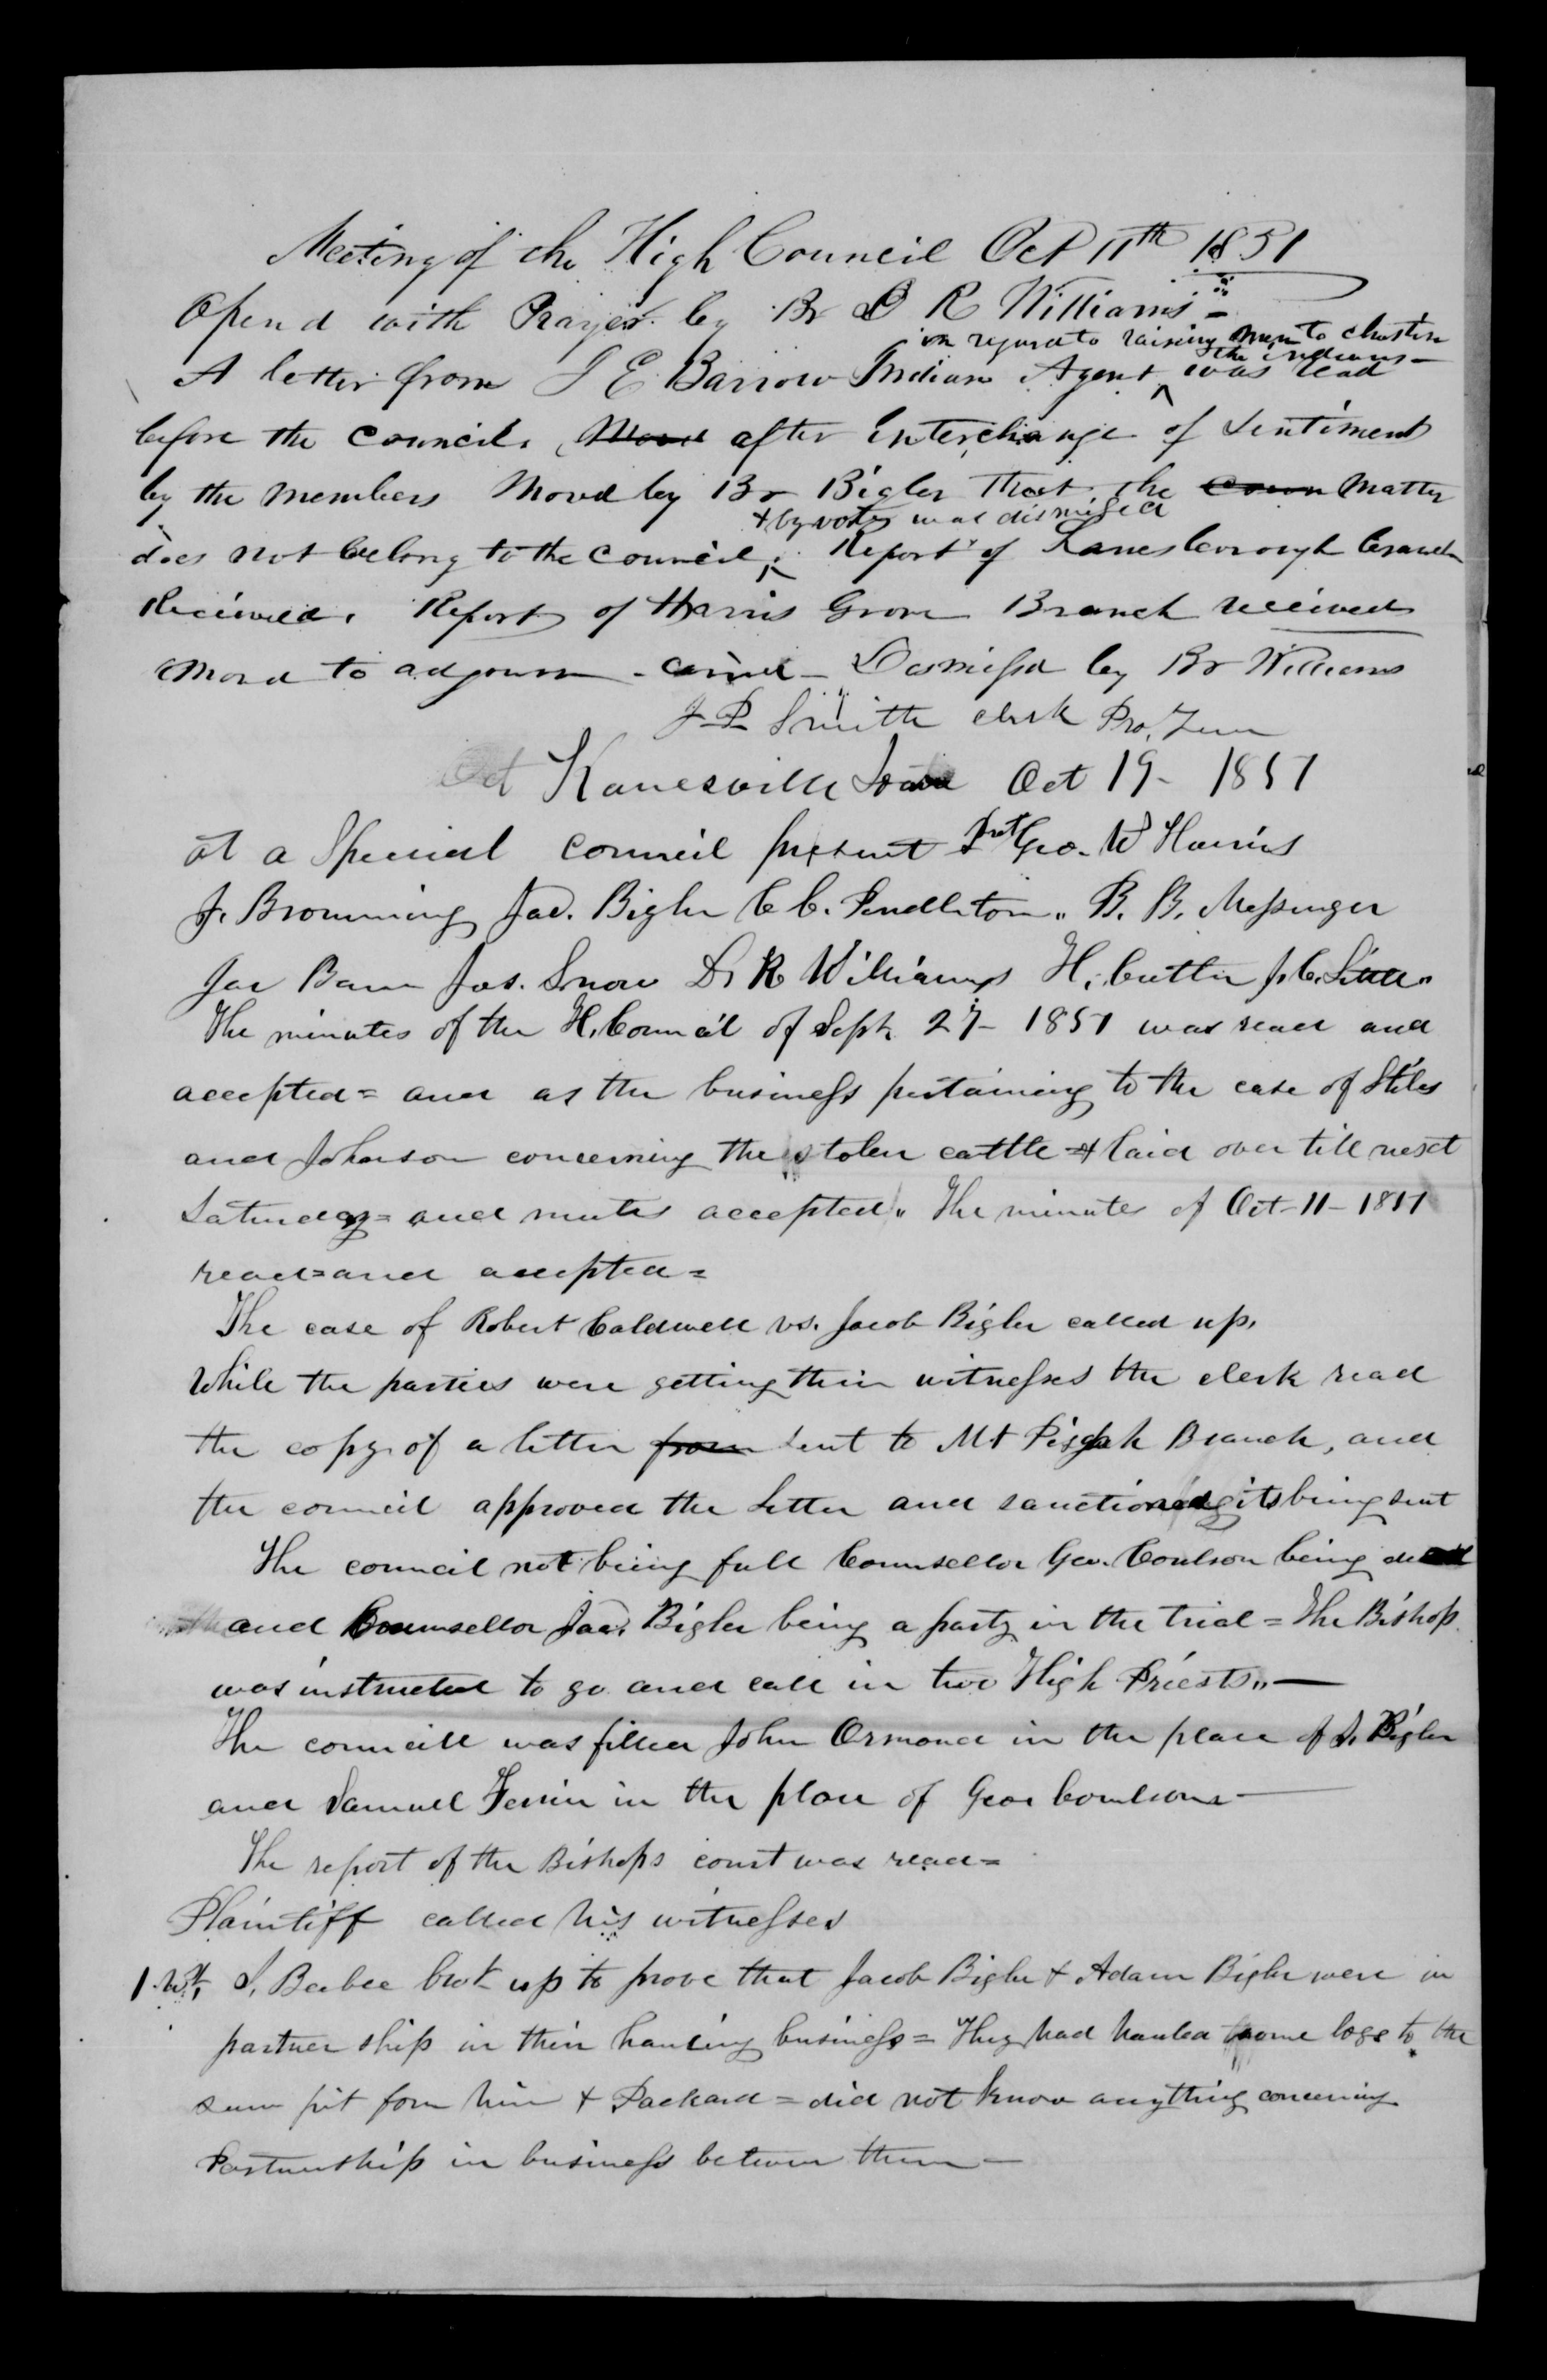 Meeting of the High Council Oct 11th 1851
Opend with Prayer by Br D R Williams =
in regard to raising men to chastise
the indians —
A letter from J E Barrow Indian Agent ^ was read
before the Council. Moved after interchange of sentiment
by the members Movd by Br Bigler that the Coun Matter
& by vote was dismissed
does not belong to the council ^ Report of Kanesborough branch
Received. Report of Harris Grove Branch received
Movd to adjourn - caried - Dismissd by Br Williams
J. P. Smith clerk Pro. Tem
Kanesville Iowa Oct 19 - 1851
at a Special council present Prst Geo. W Harris
J. Browning Jac. Bigler C C. Pendleton " B. B. Messenger
Jas. Snow D. R Williams H. Cutler J. C. Little "
The minutes of the H. Council of Sept 27 - 1851 was read and
accepted = and as the business pertaining to the case of Stiles
and Johnson concerning the stolen cattle & laid over till next
Saturday = and mutes accepted " The minutes of Oct - 11 - 1851
read = and accepted =
The case of Robert Caldwell vs. Jacob Bigler called up.
While the parties were getting their witnesses the clerk read
the copy of a letter from sent to Mt Pisgah Branch, and
the council approved the Letter and sanctioned its being sent
The council not being full Counsellor Geo. Coulson being dead
and Counsellor Jac. Bigler being a party in the trial = The Bishop
was instructed to go and call in two High Priests " —
The councill was filled John Ormond in the place of J. Bigler
and Samuel Ferrin in the place of Geo Coulson —
The report of the Bishops court was read =
Plaintiff called his witnesses
1. Wt, S, Beebee brot up to prove that Jacob Bigler & Adam Bigler were in
partner ship in their hauling business = They had hauled some logs to the
saw pit for him & Packard = did not know anything concerning
Partnership in business between them —